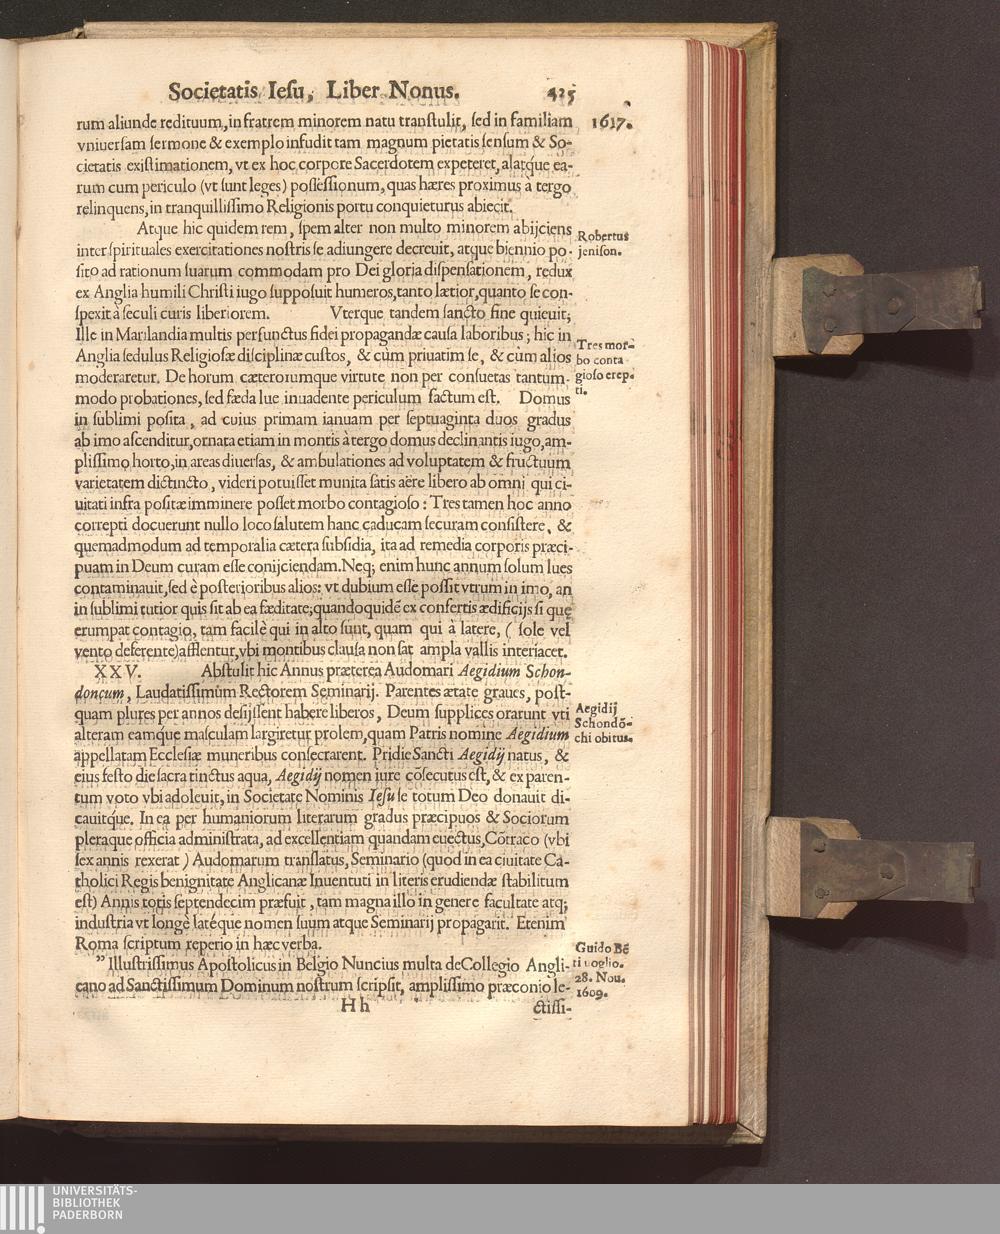 Societatis Iesu, Liber Nonus. 425
1617.
rum aliunde redituum, in fratrem minorem natu transtulit, sed in familiam
vniuersam sermone & exemplo infudit tam magnum pietatis sensum & So-
cietatis existimationem, vt ex hoc corpore Sacerdotem expeteret, alatq́ue ea-
rum cum periculo (vt sunt leges) possessionum, quas hæres proximus à tergo
relinquens, in tranquillissimo Religionis portu conquieturus abiecit.
Atque hic quidem rem, spem alter non multo minorem abijciens
inter spirituales exercitationes nostris se adiungere decreuit, atque biennio po-
sito ad rationum suarum commodam pro Dei gloria dispensationem, redux
ex Anglia humili Christi iugo supposuit humeros, tanto lætior, quanto se con-
spexit à seculi curis liberiorem. Vterque tandem sancto fine quieuit;
Robertus
jenison.
Ille in Marilandia multis perfunctus fidei propagandæ causa laboribus; hic in
Anglia sedulus Religiosæ disciplinæ custos, & cùm priuatim se, & cùm alios
moderaretur. De horum cæterorumque virtute non per consuetas tantum-
modo probationes, sed fæda lue inuadente periculum factum est. Domus
in sublimi posita, ad cuius primam ianuam per septuaginta duos gradus
ab imo ascenditur, ornata etiam in montis à tergo domus declinantis iugo, am-
plissimo horto, in areas diuersas, & ambulationes ad voluptatem & fructuum
varietatem dictincto, videri potuisset munita satis aëre libero ab omni qui ci-
uitati infra positæ imminere posset morbo contagioso: Tres tamen hoc anno
correpti docuerunt nullo loco salutem hanc caducam securam consistere, &
quemadmodum ad temporalia cætera subsidia, ita ad remedia corporis præci-
puam in Deum curam esse conijciendam. Neq; enim hunc annum solum lues
contaminauit, sed è posterioribus alios: vt dubium esse possit vtrum in imo, an
in sublimi tutior quis sit ab ea fæditate; quandoquidē ex confertis ædificijs si quę
erumpat contagio, tam facilè qui in alto sunt, quam qui à latere, (sole vel
vento deferente) afflentur, vbi montibus clausa non sat ampla vallis interiacet.
Tres mor-
bo conta
gioso erep-
ti.
XXV. Abstulit hic Annus præterea Audomari Aegidium Schon-
doncum, Laudatissimûm Rectorem Seminarij. Parentes ætate graues, post-
quam plures per annos desijssent habere liberos, Deum supplices orarunt vti
alteram eamq́ue masculam largiretur prolem, quam Patris nomine Aegidium
appellatam Ecclesiæ muneribus consecrarent. Pridie Sancti Aegidij natus, &
eius festo die sacra tinctus aqua, Aegidij nomen iure cōsecutus est, & ex paren-
tum voto vbi adoleuit, in Societate Nominis Iesu se totum Deo donauit di-
cauitq́ue. In ea per humaniorum literarum gradus præcipuos & Sociorum
pleraque officia administrata, ad excellentiam quandam euectus, Cōtraco (vbi
sex annis rexerat) Audomarum translatus, Seminario (quod in ea ciuitate Ca-
tholici Regis benignitate Anglicanæ Iuuentuti in literis erudiendæ stabilitum
est) Annis totis septendecim præfuit, tam magna illo in genere facultate atq;
industria vt longè latéque nomen suum atque Seminarij propagarit. Etenim
Roma scriptum reperio in hæc verba.
Aegidij
Schondō-
chi obitus.
” Illustrissimus Apostolicus in Belgio Nuncius multa de Collegio Angli-
cano ad Sanctissimum Dominum nostrum scripsit, amplissimo præconio le-
Guido Bē
tiuoglio.
28. Nou.
1609.
Hh ctissi-
UNIVERSITÄTS-
BIBLIOTHEK
PADERBORN